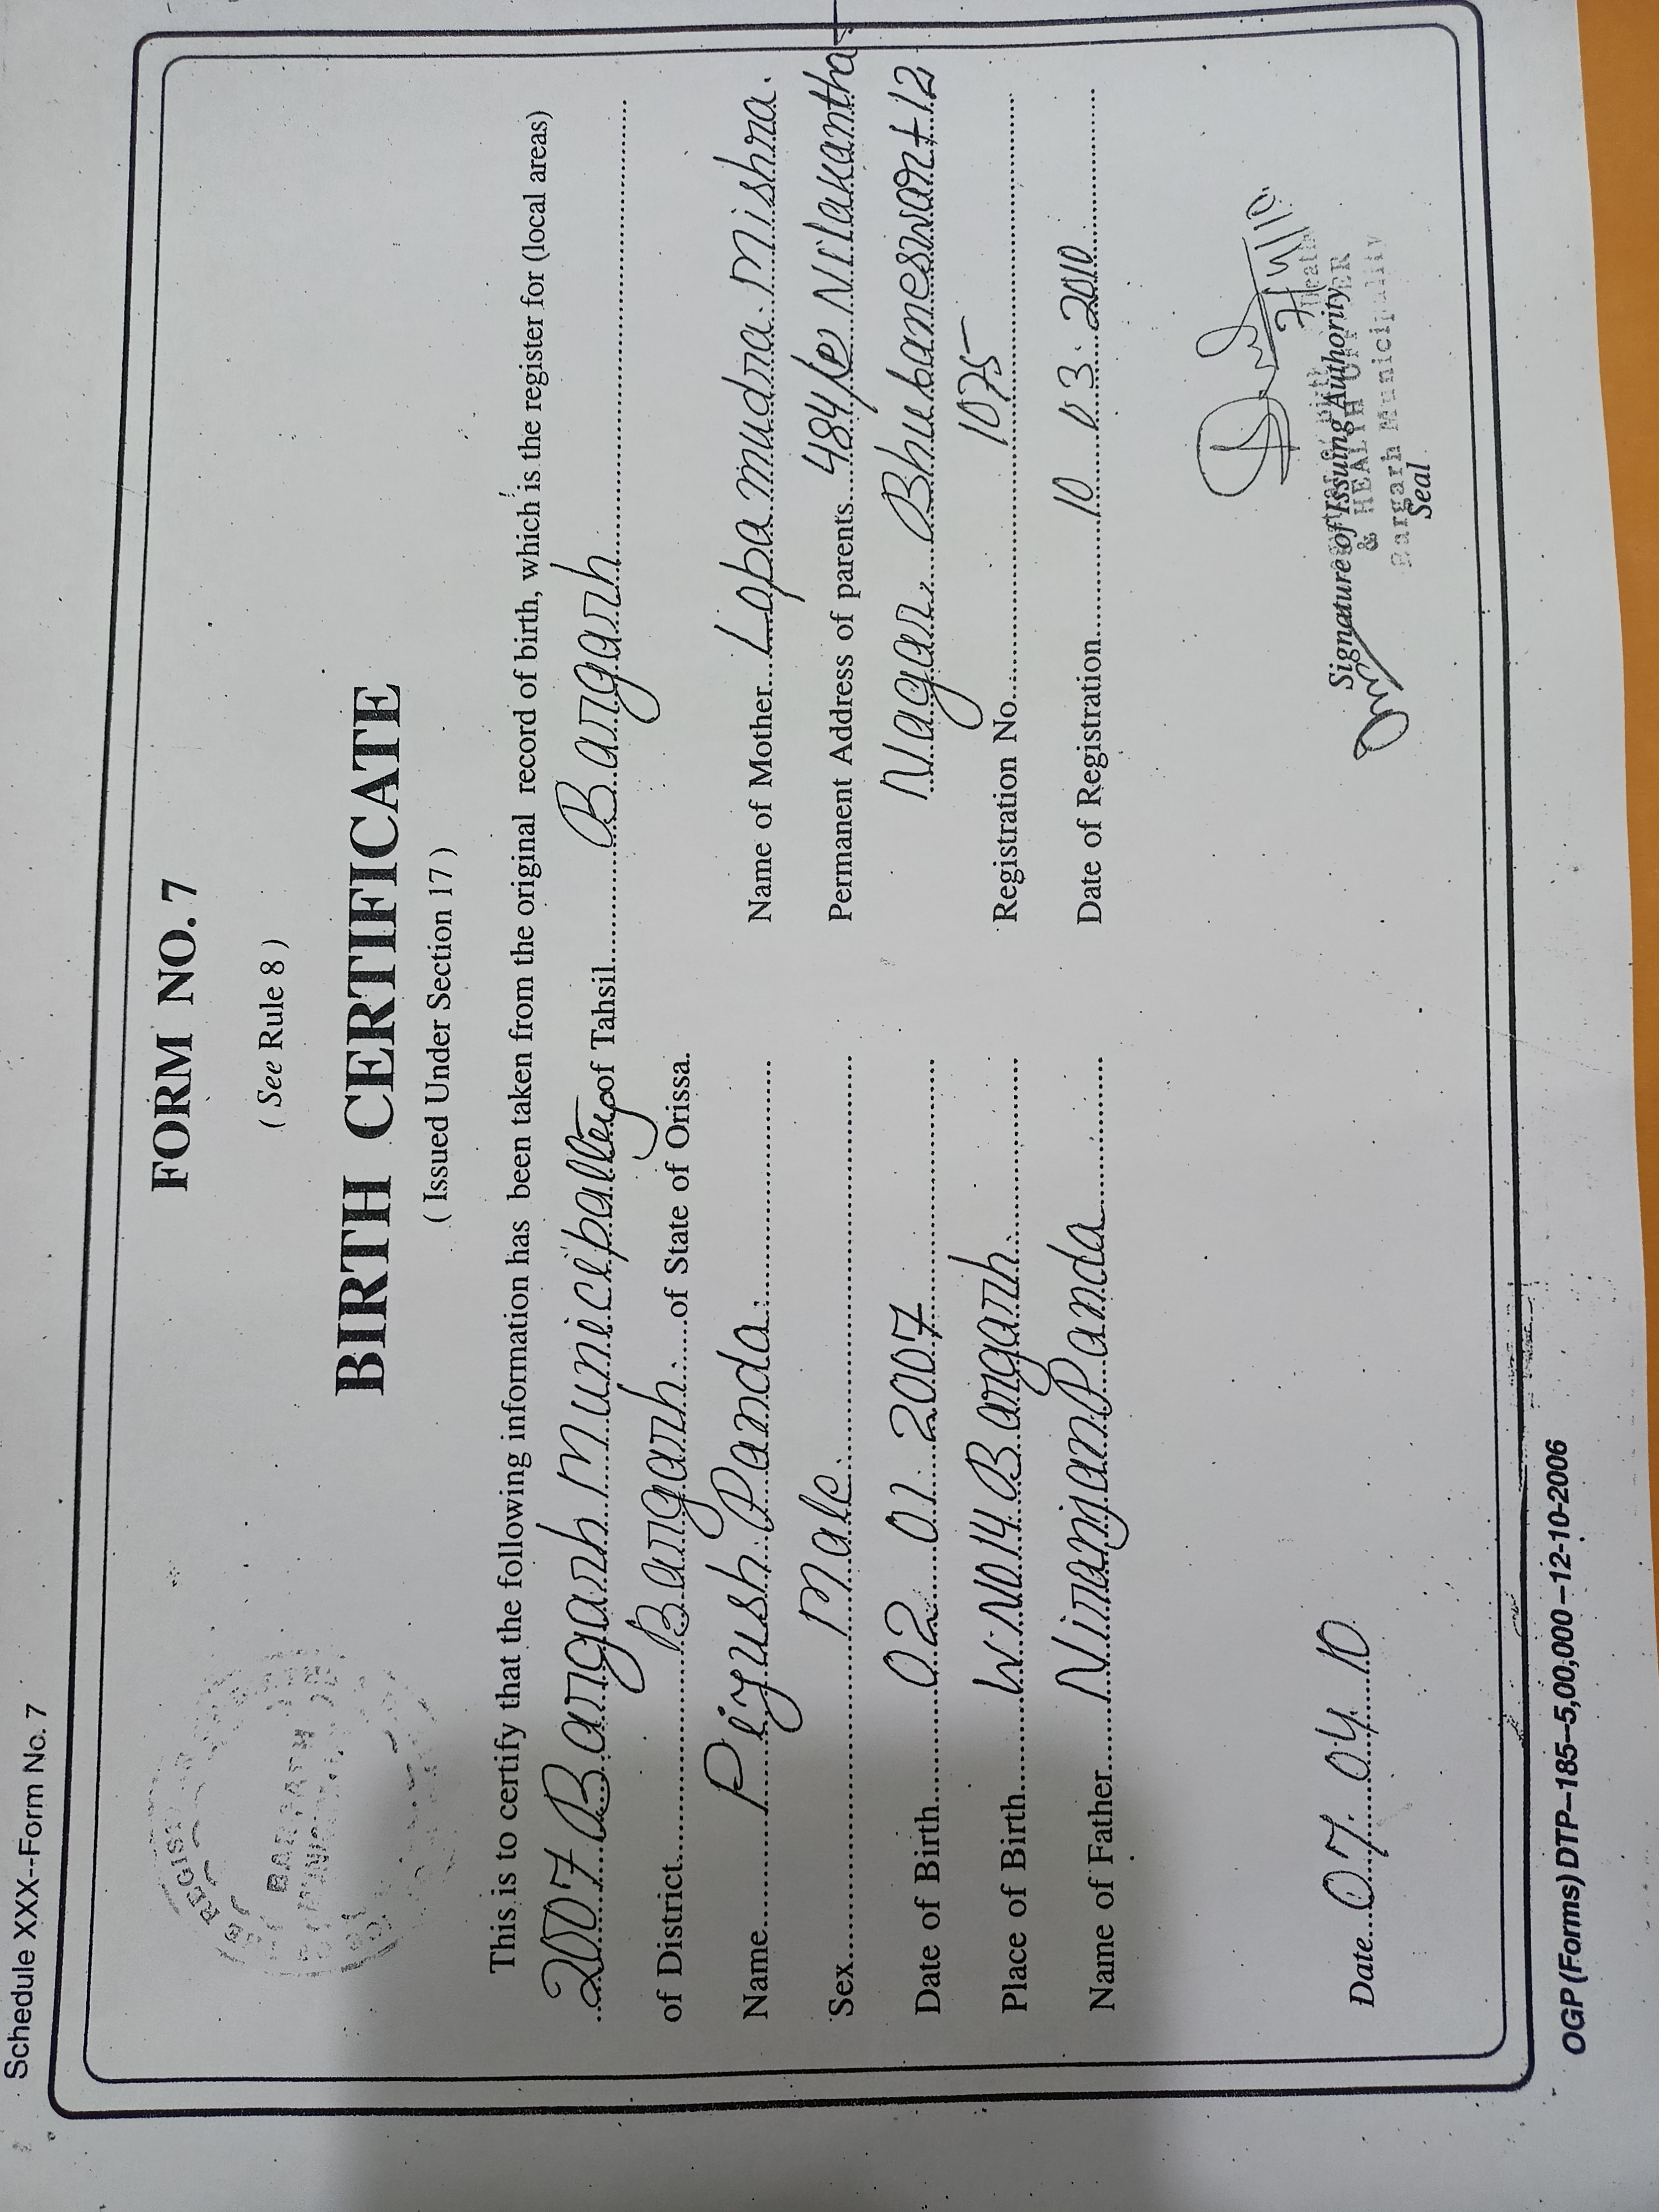 Schedule XXX--Form No. 7
FORM NO. 7
( See Rule 8 )
BIRTH CERTIFICATE
( Issued Under Section 17 )
REGIST
BARGARH
This is to certify that the following information has been taken from the original record of birth, which is the register for (local areas)
2007 Bargarh Municipality of Tahsil Bargarh
of District Bargarh of State of Orissa.
Name Piyush Panda
Sex Male
Date of Birth 02 01 2007
Place of Birth W.No14 Bargarh
Name of Father Niranjan Panda
Name of Mother Lopamudra Mishra.
Permanent Address of parents 484/ Nilakantha
Nagar, Bhubaneswar-12
Registration No. 1075
Date of Registration 10 03. 2010
Date 07. 04. 10
7/4/10
Signature of Issuing Authority
& HEALTH OFFICER
Bargarh Municipality
Seal
OGP (Forms) DTP–185–5,00,000–12-10-2006